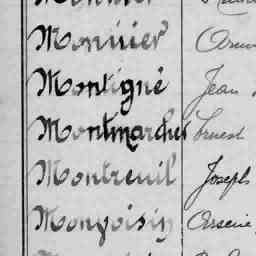 Monnier
Montigné Jean
Montmarcher Ernest
Montreuil Joseph
Monvoisin Arsène